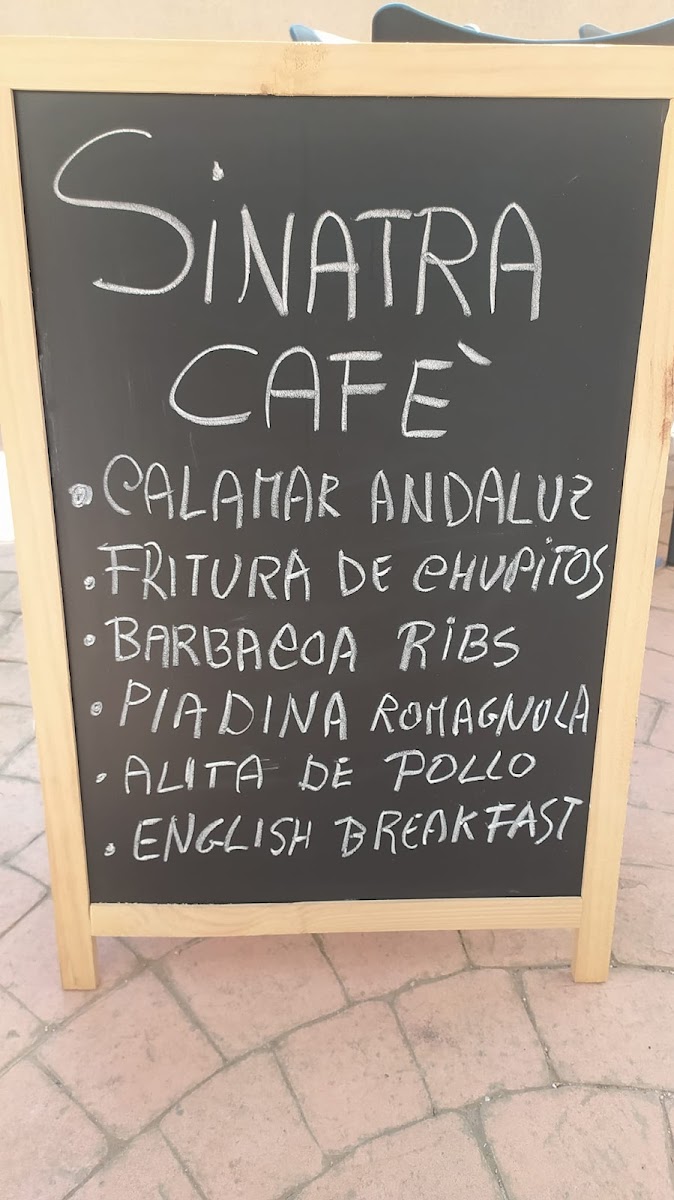 SiNATRA
CAFÈ
• CALAMAR ANDALUZ
• FRITURA DE CHUPiTOS
• BARBACOA RiBS
• PIADINA ROMAGNOLA
• ALITA DE POLLO
• ENGLISH BREAKFAST